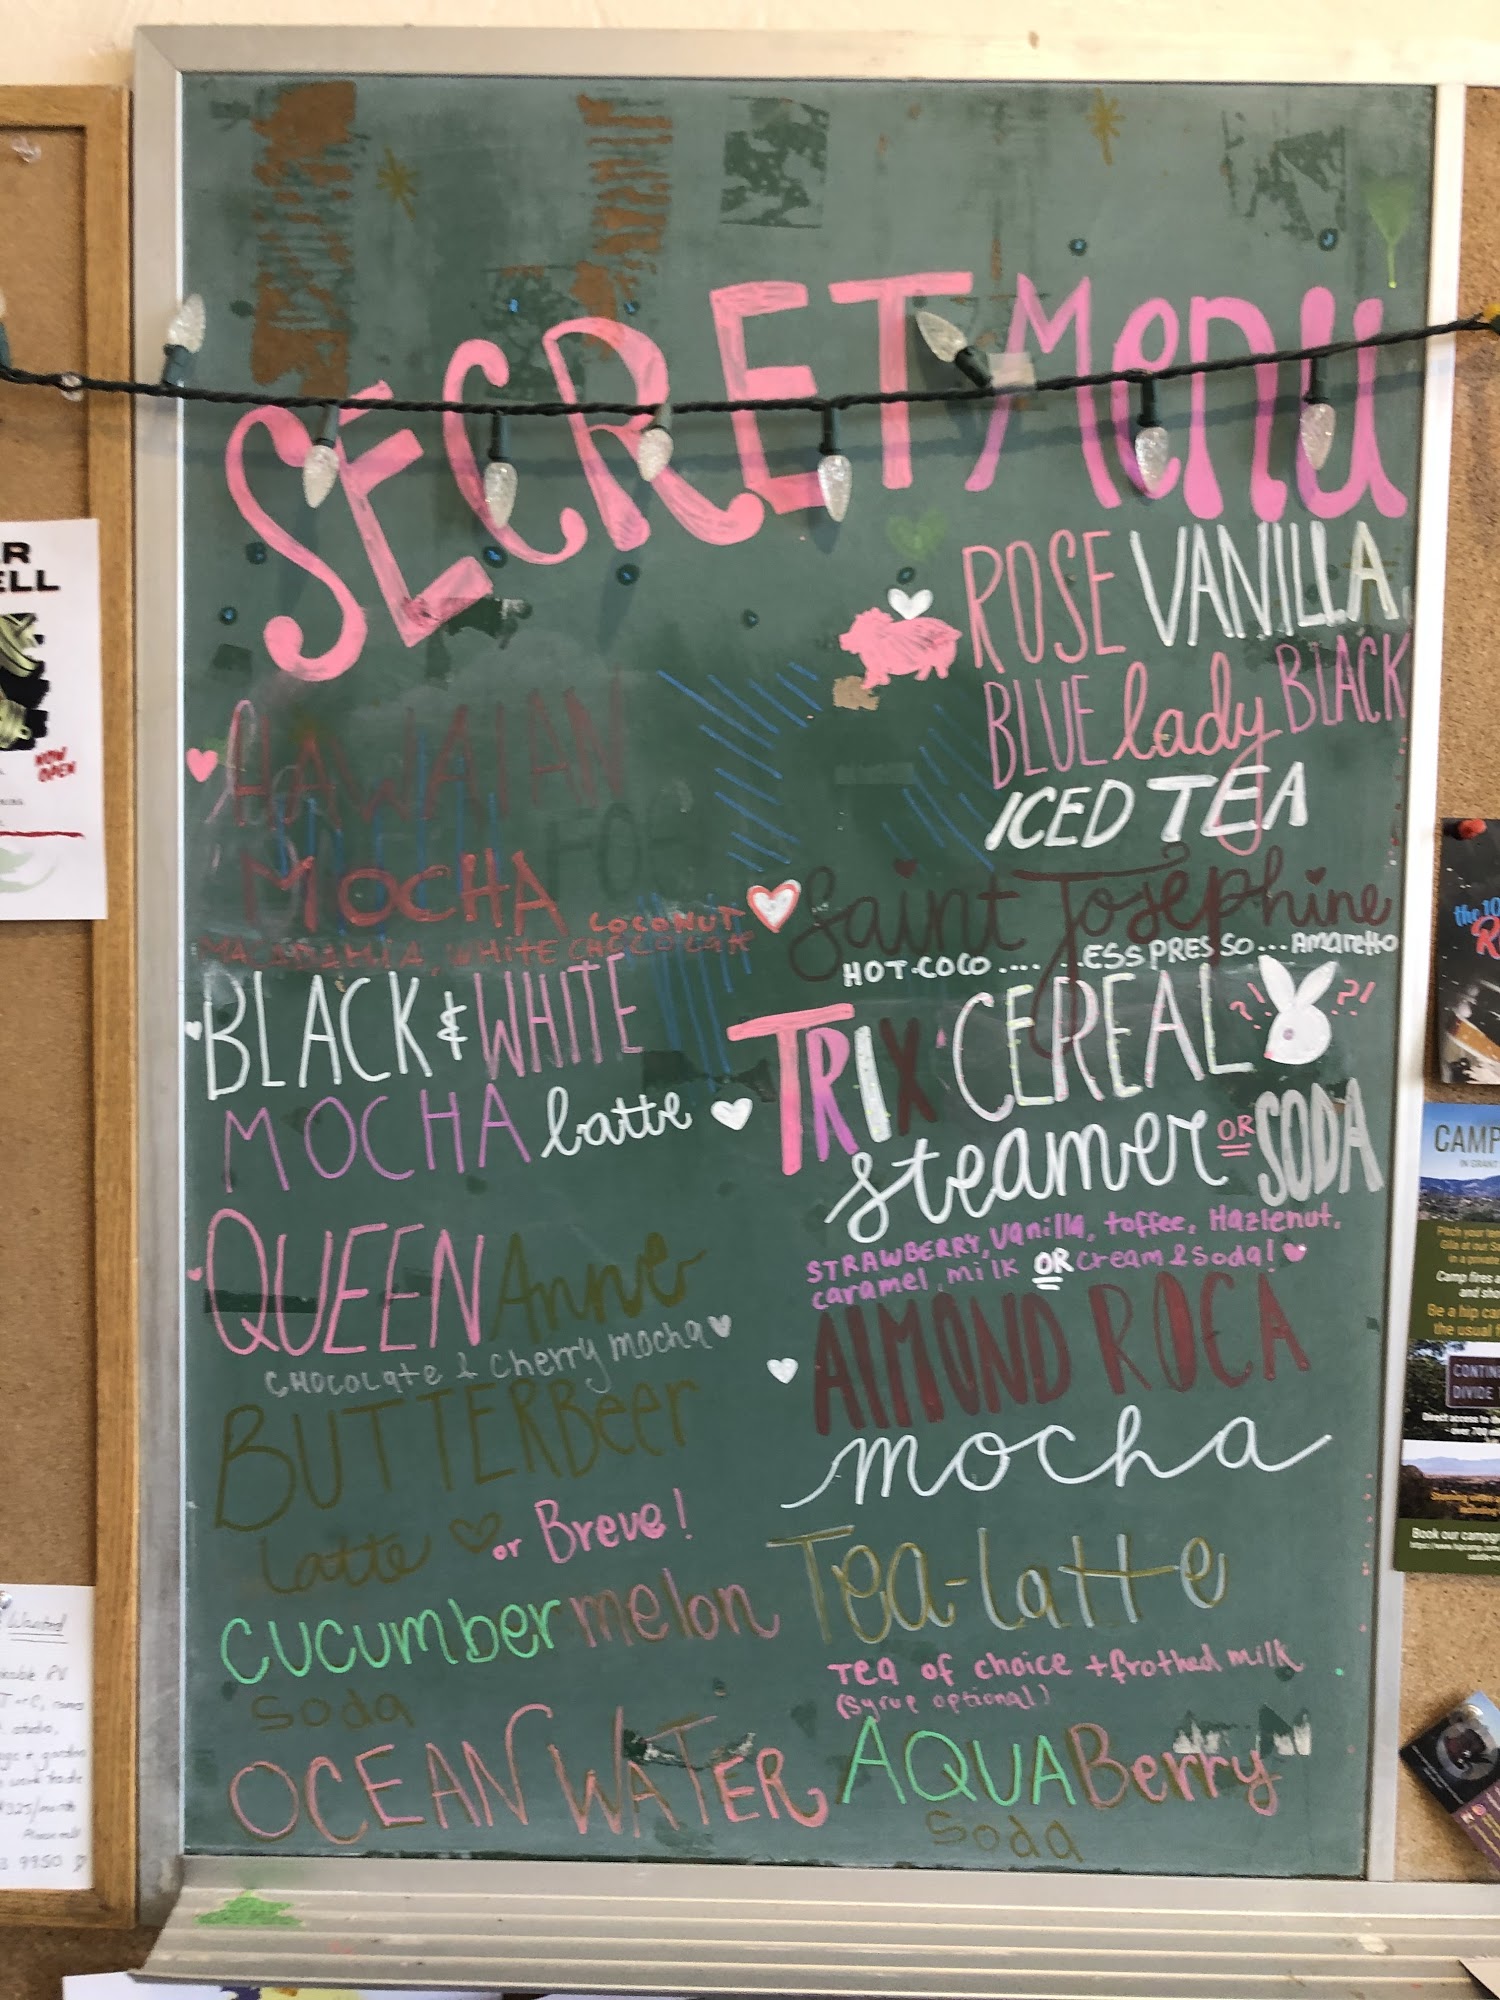 SECRET Menu
HAWAIAN
MOCHA COCONUT
MACADAMIA, WHITE CHOCOLATE
BLACK & WHITE
MOCHA latte
QUEEN Anne
CHOCOLATE & Cherry mocha
BUTTERBeer
Latte or Breve!
cucumber melon
Soda
OCEAN WATER
ROSE VANILLA
BLUE lady BLACK
ICED TEA
Saint Josephine
HOT-COCO .... ..ESSPRESSO... Amaretto
TRIX CEREAL ?! ?!
steamer OR SODA
STRAWBERRY, Vanilla, toffee, Hazlenut,
caramel, milk OR cream & soda!
AlMOND ROCA
mocha
Tea-latte
Tea of choice + frothed milk
(Syrup optional)
AQUABerry
Soda
R
ELL
NOW
OPEN
Wanted
9950
the 10
R
CAMP
Camp fires a
and sho
Be a hip ca
the usual f
CONTIN
DIVIDE
Direct access to th
over 700 m
Book our campgr